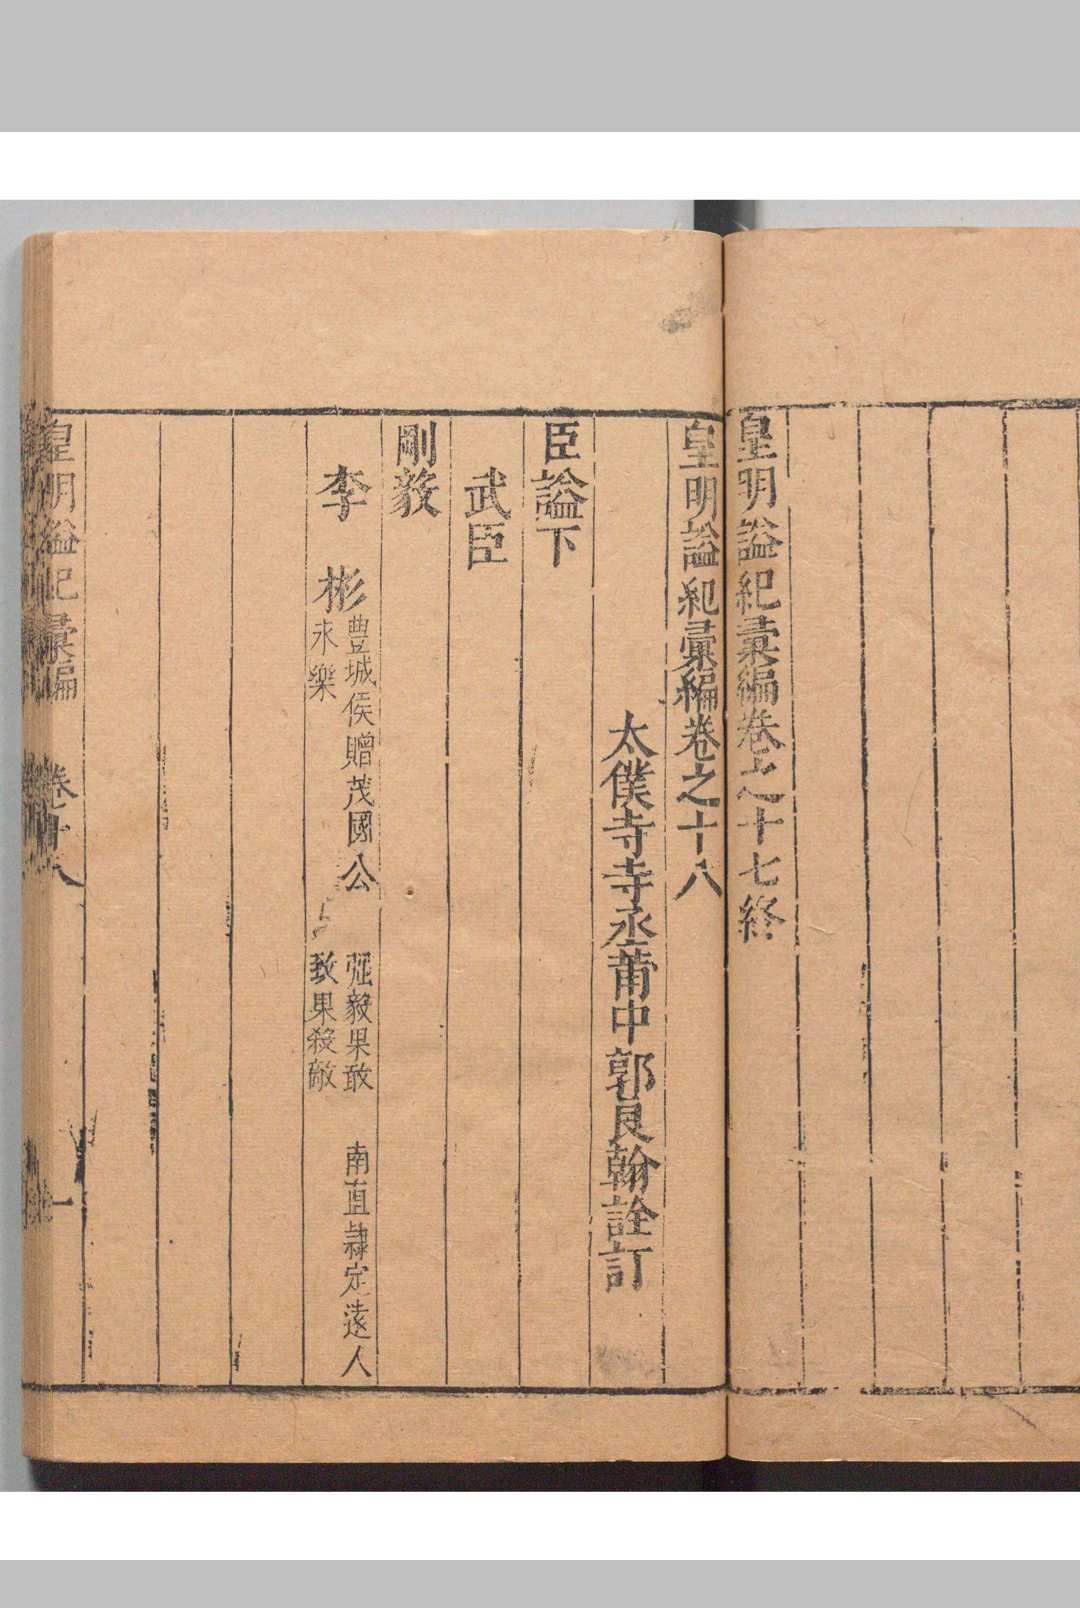 皇明謚紀彙編卷之十七終
皇明謚紀彙編卷之十八
太僕寺寺丞莆中郭良翰詮訂
臣謚下
武臣
剛毅
李彬
豊城侯贈茂國公
永樂
强毅果敢
致果殺敵
南直隷定遠人
皇明謚紀彙編 卷十八 一